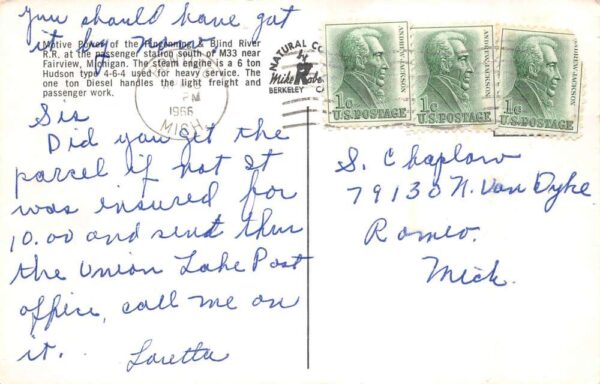 you should have got
it by now.
Motive Power of the Pinconning & Blind River
R.R. at the passenger station south of M33 near
Fairview, Michigan. The steam engine is a 6 ton
Hudson type 4-6-4 used for heavy service. The
one ton Diesel handles the light freight and
passenger work.
NATURAL CO
by
Mike Robe
BERKELEY CA
PM
1966
MICH.
ANDREW JACKSON
1c
U.S. POSTAGE
ANDREW JACKSON
1c
U.S. POSTAGE
ANDREW JACKSON
1c
U.S. POSTAGE
Sis
Did you get the
parcel if not It
was insured for
10.00 and send thru
the Union Lake Post
office, call me on
it.
Loretta
S. Chaplow
79130 N. Van Dyke
Romeo.
Mich.